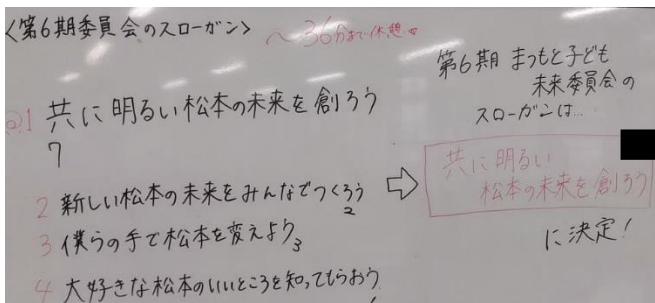 <第6期委員会のスローガン>
～36分まで休憩
1 共に明るい松本の未来を創ろう
7
2 新しい松本の未来をみんなでつくろう
2
3 僕らの手で松本を変えよう
3
4 大好きな松本のいいところを知ってもらおう
第6期 まつもと子ども
未来委員会の
スローガンは…
⇨
共に明るい
松本の未来を創ろう
に決定!